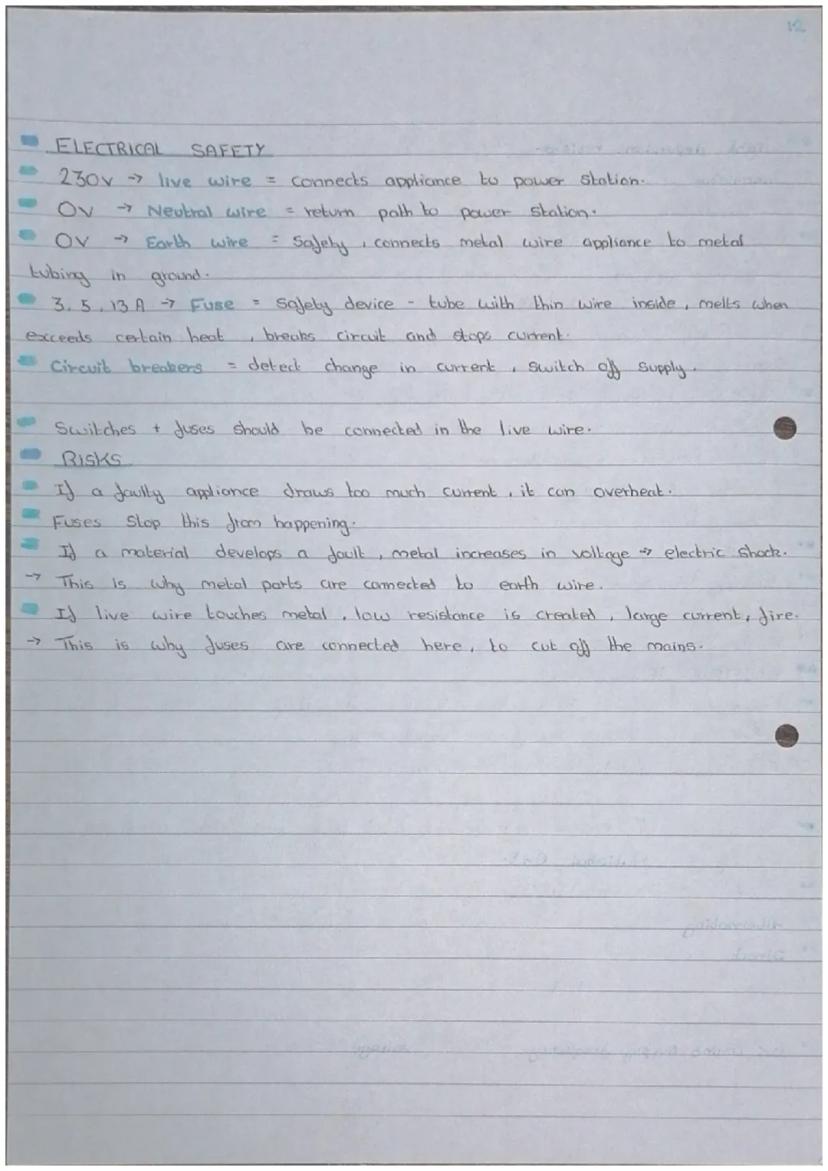 12
ELECTRICAL SAFETY
230v → live wire = connects appliance to power station.
0v → Neutral wire = return path to power station.
0v → Earth wire = safety, connects metal wire appliance to metal
tubing in ground.
3, 5, 13 A → Fuse = safety device - tube with thin wire inside, melts when
exceeds certain heat, breaks circuit and stops current.
Circuit breakers = detect change in current, switch off supply.
Switches + fuses should be connected in the live wire.
RISKS
If a faulty appliance draws too much current, it can overheat.
Fuses stop this from happening.
If a material develops a fault, metal increases in voltage → electric shock.
→ This is why metal parts are connected to earth wire.
If live wire touches metal, low resistance is created, large current, fire.
→ This is why fuses are connected here, to cut off the mains.